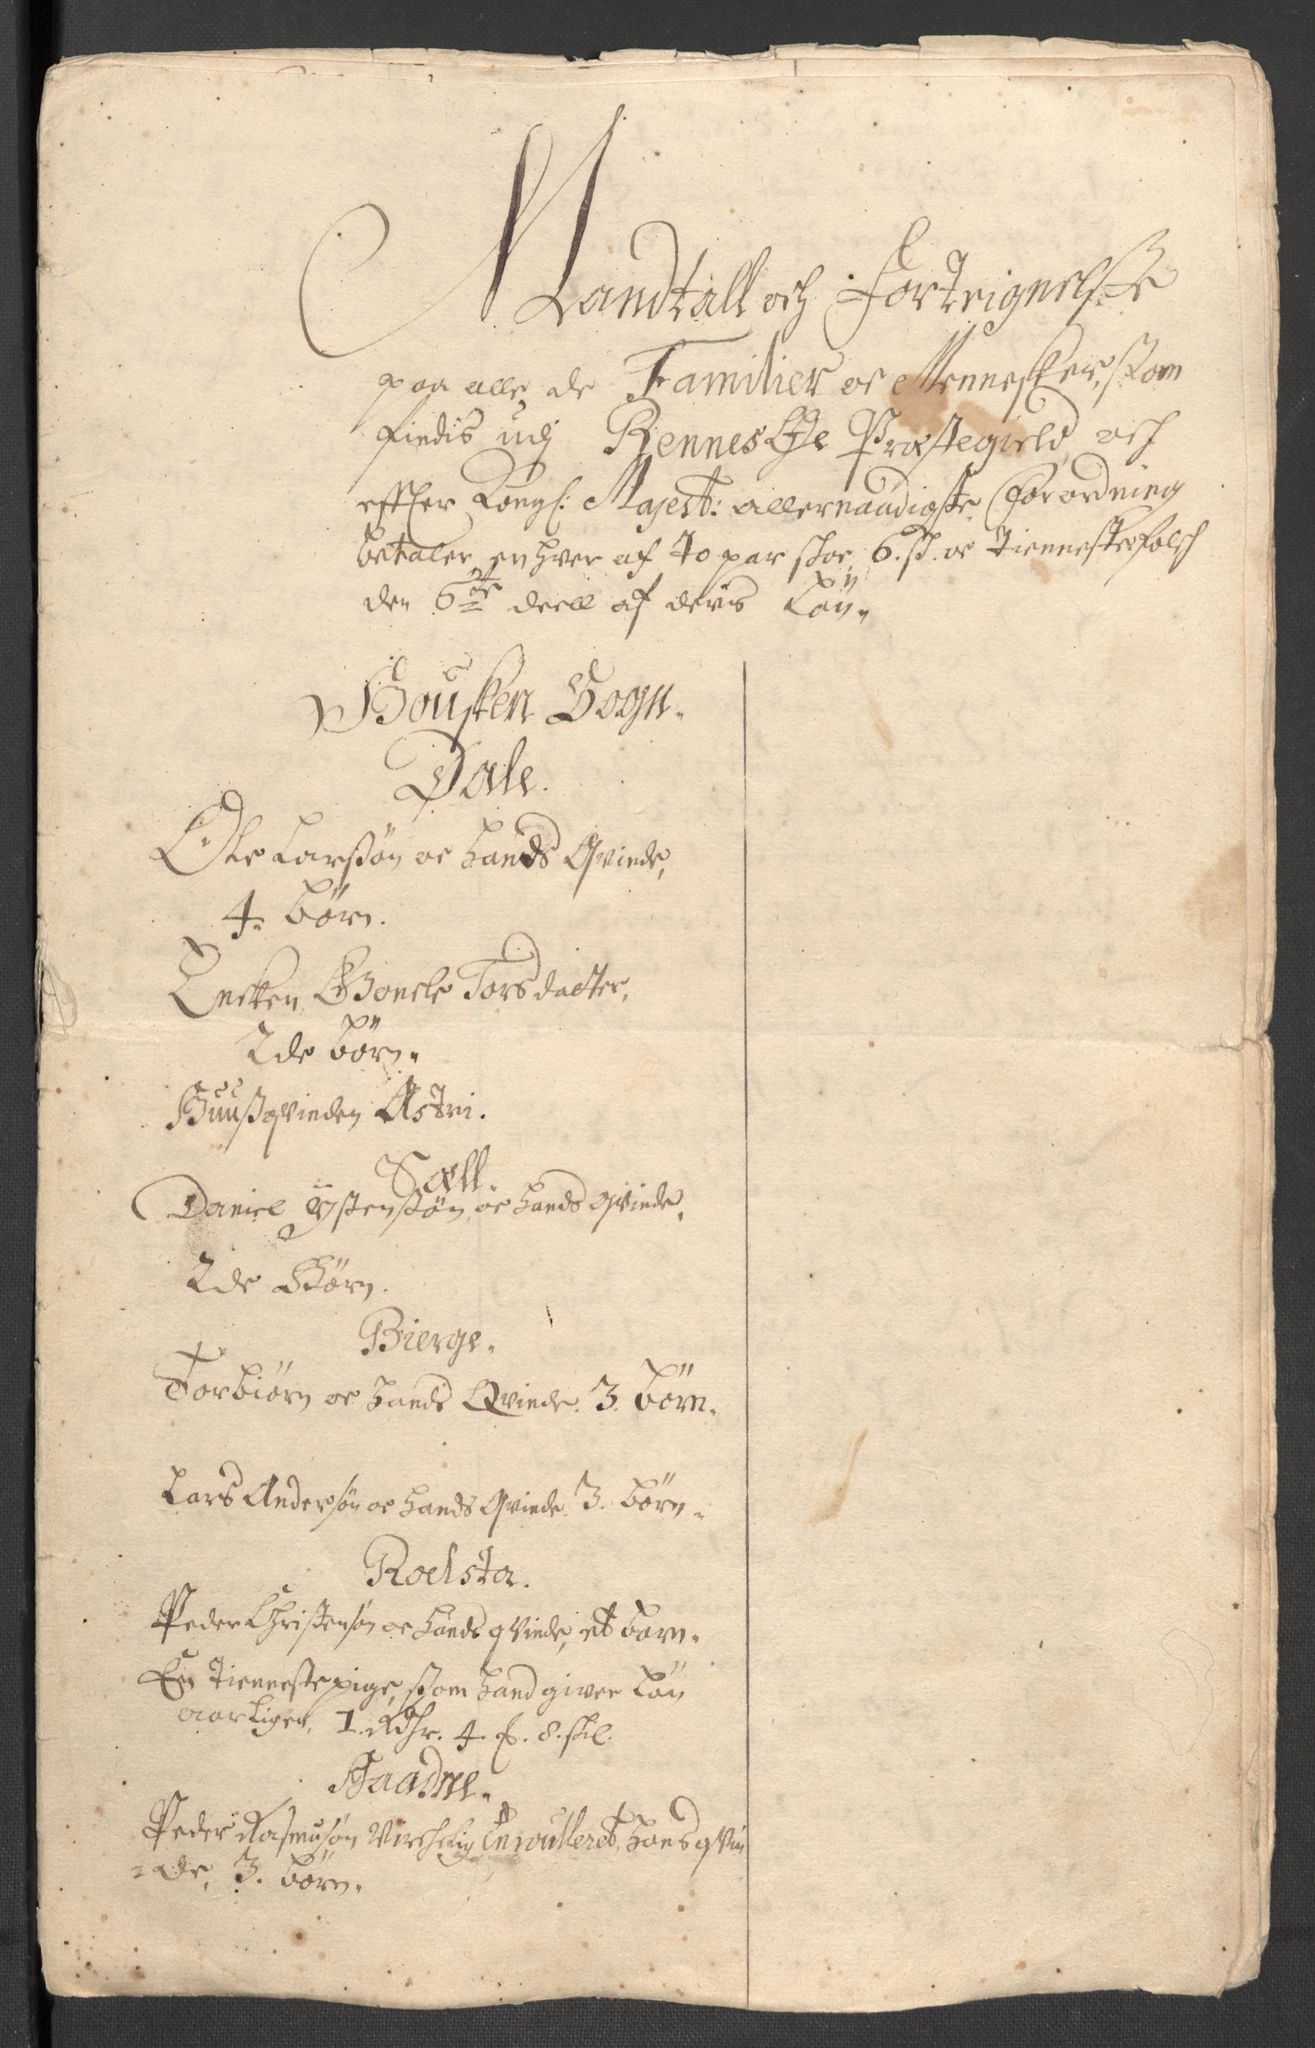 Mandtall och Forteignelsse
paa alle de Familier oc Mennesker, ssom
findis udj Rennesøe Præstegield, och
effter Kongl: Mayest: allernaadigste Forordning
betaler en hver af To par skoe, 6. sk. oc Tiennestefolch
den 6te deell af deris Løn.
Housken Sogn.
Dale.
Ole Larssøn oc hands Qvinde,
4. børn.
Encken Gonele Torsdaatter,
2de børn.
Huussqvinden Astri.
Sæll.
Daniel Ÿstenssøn oc hands qvinde,
2de Børn.
Bierge.
Torbiørn oc hands Qvinde. 3. børn.
Lars Andersøn oc hands Qvinde. 3. børn.
Roelsta.
Peder Christensøn oc hands qvinde, et barn.
En Tiennestepige, ssom hand giver Løn
aarligen, 1. Rdhr. 4 . 8. skl.
Haadne.
Peder Rasmusøn Virchelig Enroulleret, hans qvin
=de, 3. børn.